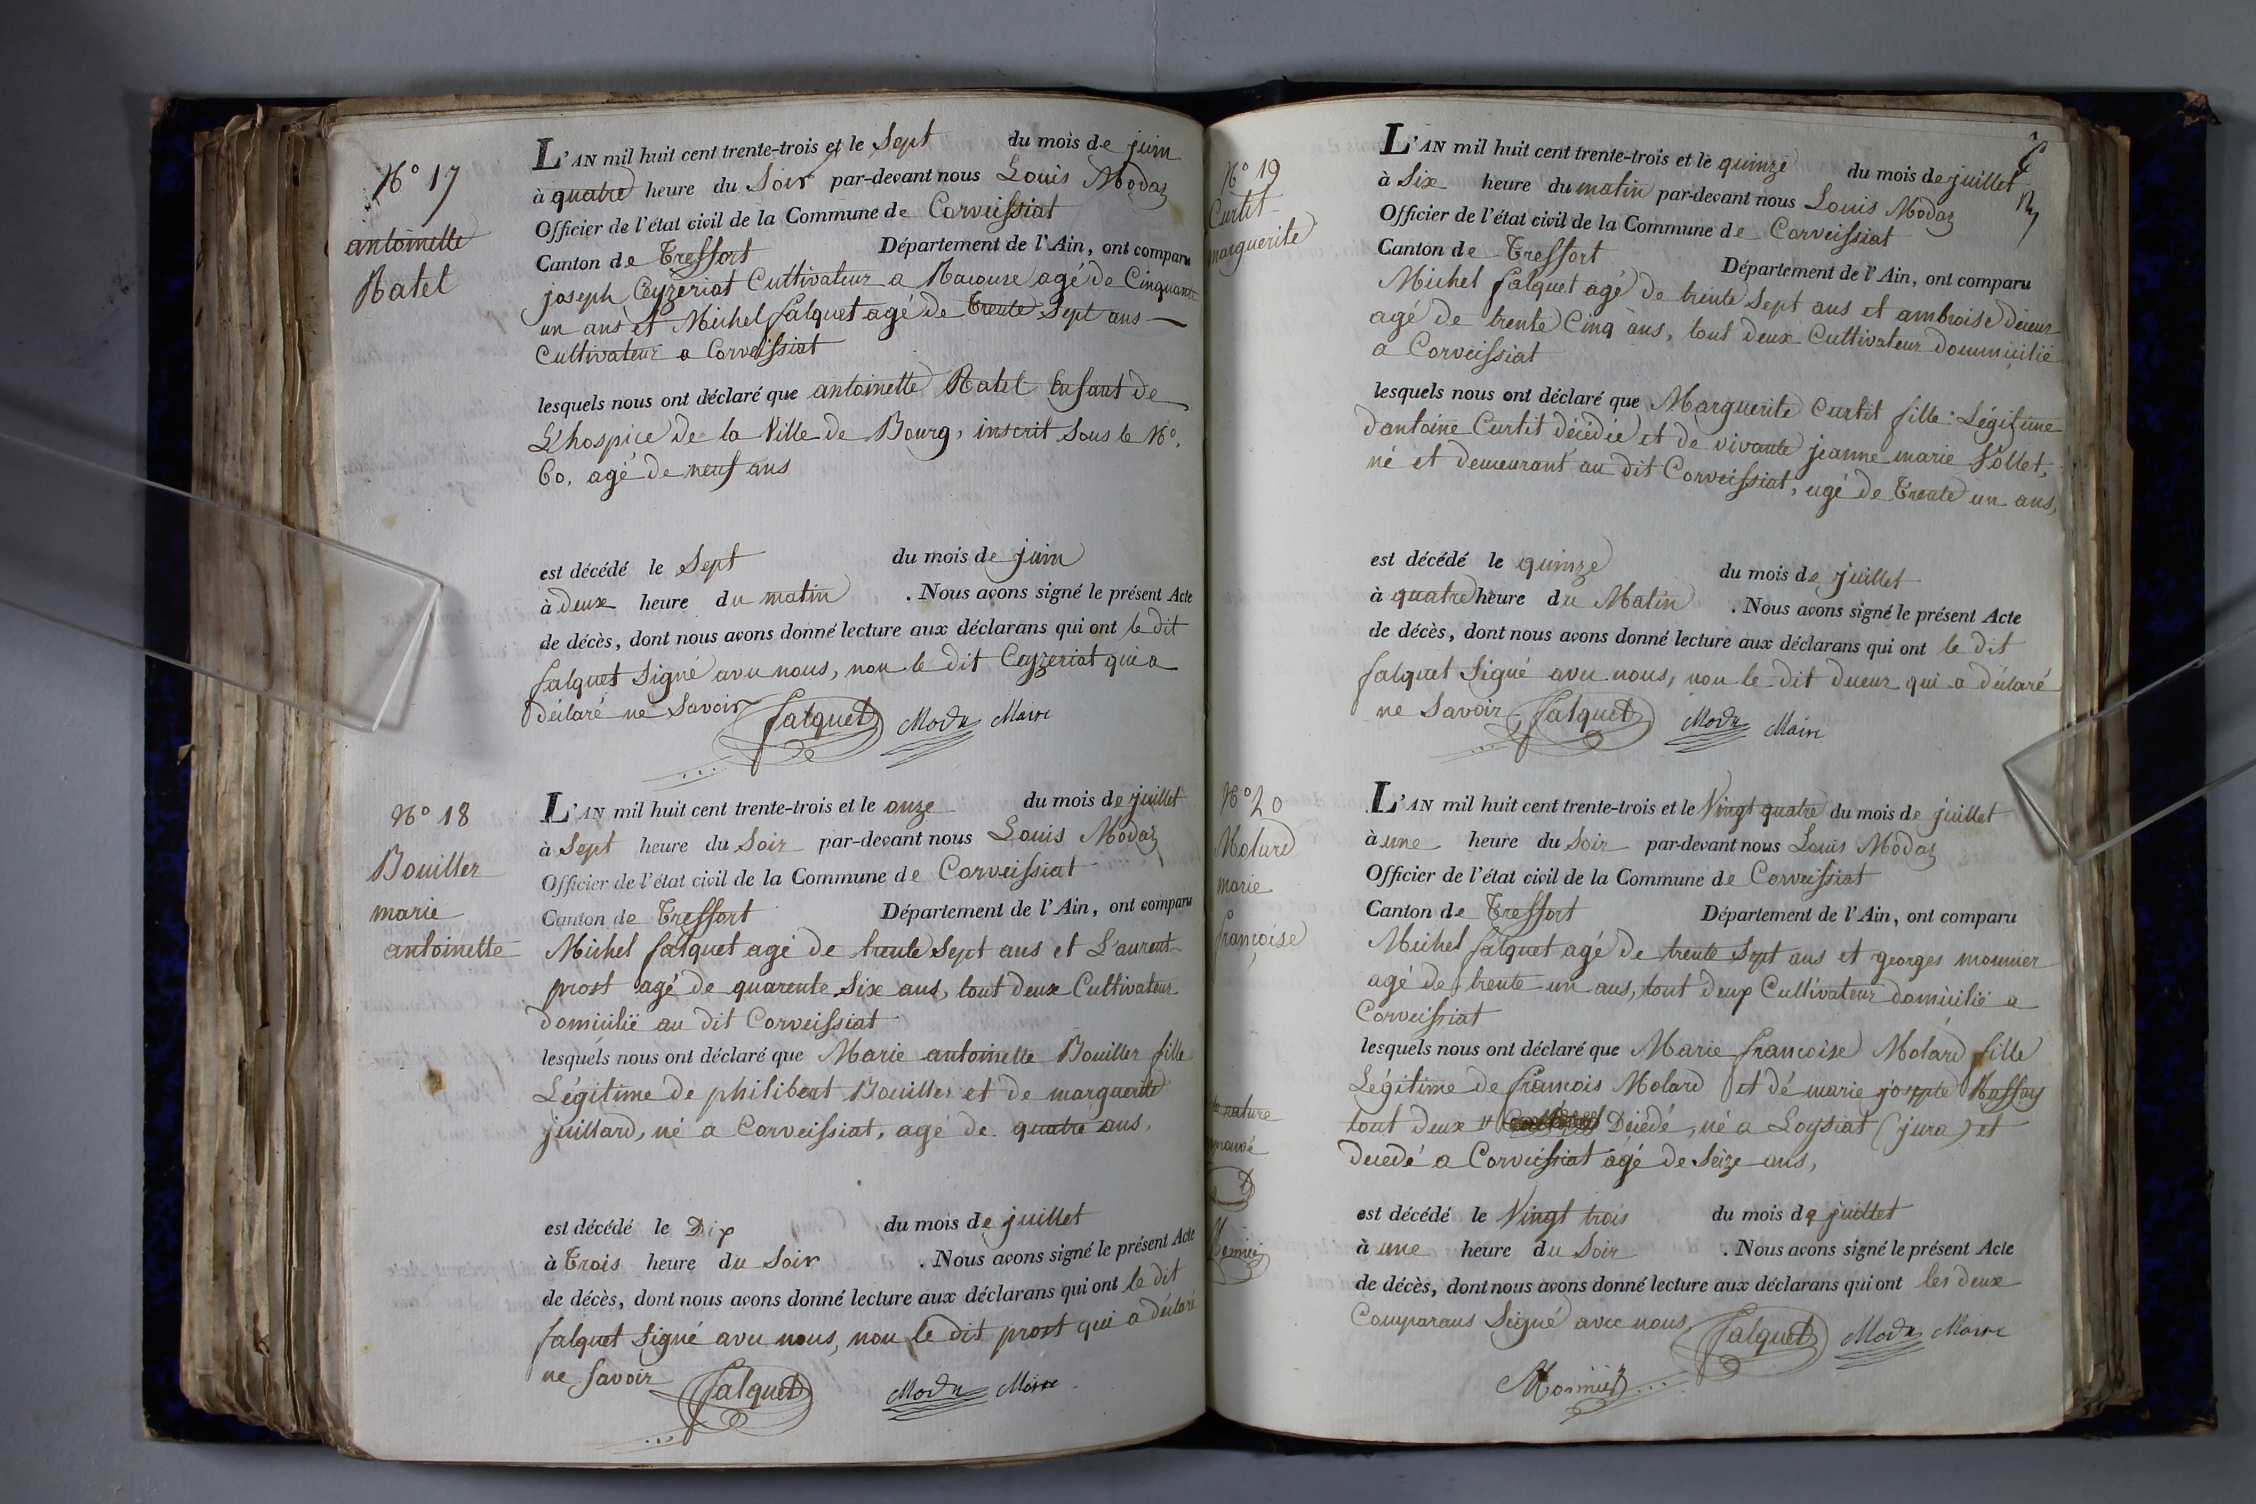 N° 17
antoinette
Ratel
L'AN mil huit cent trente-trois et le Sept du mois de juin
à quatre heure du Soir par-devant nous Louis Modaz
Officier de l'état civil de la Commune de Corveissiat
Canton de Treffort Département de l'Ain, ont comparu
joseph Ceyzeriat Cultivateur a Racouse agé de Cinquante
un ans et Michel falquet agé de trente Sept ans
Cultivateur a Corveissiat
lesquels nous ont déclaré que antoinette Ratel Enfant de
L'hospice de la Ville de Bourg, inscrit Sous le N°.
60, agé de neuf ans
est décédé le Sept du mois de juin
à deux heure du matin . Nous avons signé le présent Acte
de décès, dont nous avons donné lecture aux déclarans qui ont le dit
falquet Signé avec nous, non le dit Ceyzeriat qui a
déclaré ne Savoir falquet Modaz Maire
N° 18
Bouiller
marie
antoinette
L'AN mil huit cent trente-trois et le onze du mois de juillet
à Sept heure du Soir par-devant nous Louis Modaz
Officier de l'état civil de la Commune de Corveissiat
Canton de Treffort Département de l'Ain, ont comparu
Michel falquet agé de trente Sept ans et Laurent
prost agé de quarente Six ans, tout deux Cultivateur
domicilié au dit Corveissiat
lesquels nous ont déclaré que Marie antoinette Bouiller fille
Légitime de philibert Bouiller et de marguerite
juillard, né a Corveissiat, agé de quatre ans,
est décédé le Dix du mois de juillet
à trois heure du Soir . Nous avons signé le présent Acte
de décès, dont nous avons donné lecture aux déclarans qui ont le dit
falquet Signé avec nous, non le dit prost qui a déclaré
ne Savoir falquet Modaz Maire
N° 19
Curtit
marguerite
L'AN mil huit cent trente-trois et le quinze du mois de juillet
à Six heure du matin par-devant nous Louis Modaz
Officier de l'état civil de la Commune de Corveissiat
Canton de Treffort Département de l'Ain, ont comparu
Michel falquet agé de trente Sept ans et ambroise
agé de trente Cinq ans, tout deux Cultivateur domicilié
a Corveissiat
lesquels nous ont déclaré que Marguerite Curtit fille Légitime
d'antoine Curtit décédé et de vivante jeanne marie
né et demeurant au dit Corveissiat, agé de trente un ans,
est décédé le quinze du mois de juillet
à quatre heure du Matin . Nous avons signé le présent Acte
de décès, dont nous avons donné lecture aux déclarans qui ont le dit
falquet Signé avec nous, non le dit qui a déclaré
ne Savoir falquet Modaz Maire
N° 20
Molard
marie
francoise
L'AN mil huit cent trente-trois et le Vingt quatre du mois de juillet
à une heure du Soir par-devant nous Louis Modaz
Officier de l'état civil de la Commune de Corveissiat
Canton de Treffort Département de l'Ain, ont comparu
Michel falquet agé de trente Sept ans et georges monnier
agé de trente un ans, tout deux Cultivateur domicilié a
Corveissiat
lesquels nous ont déclaré que Marie francoise Molard fille
Légitime de francois Molard et de marie
tout deux Décédé, né a Loysiat (jura) et
decedé a Corveissiat agé de Seize ans,
est décédé le Vingt trois du mois de juillet
à une heure du Soir . Nous avons signé le présent Acte
de décès, dont nous avons donné lecture aux déclarans qui ont les deux
Comparans Signé avec nous falquet Modaz Maire
Monnier